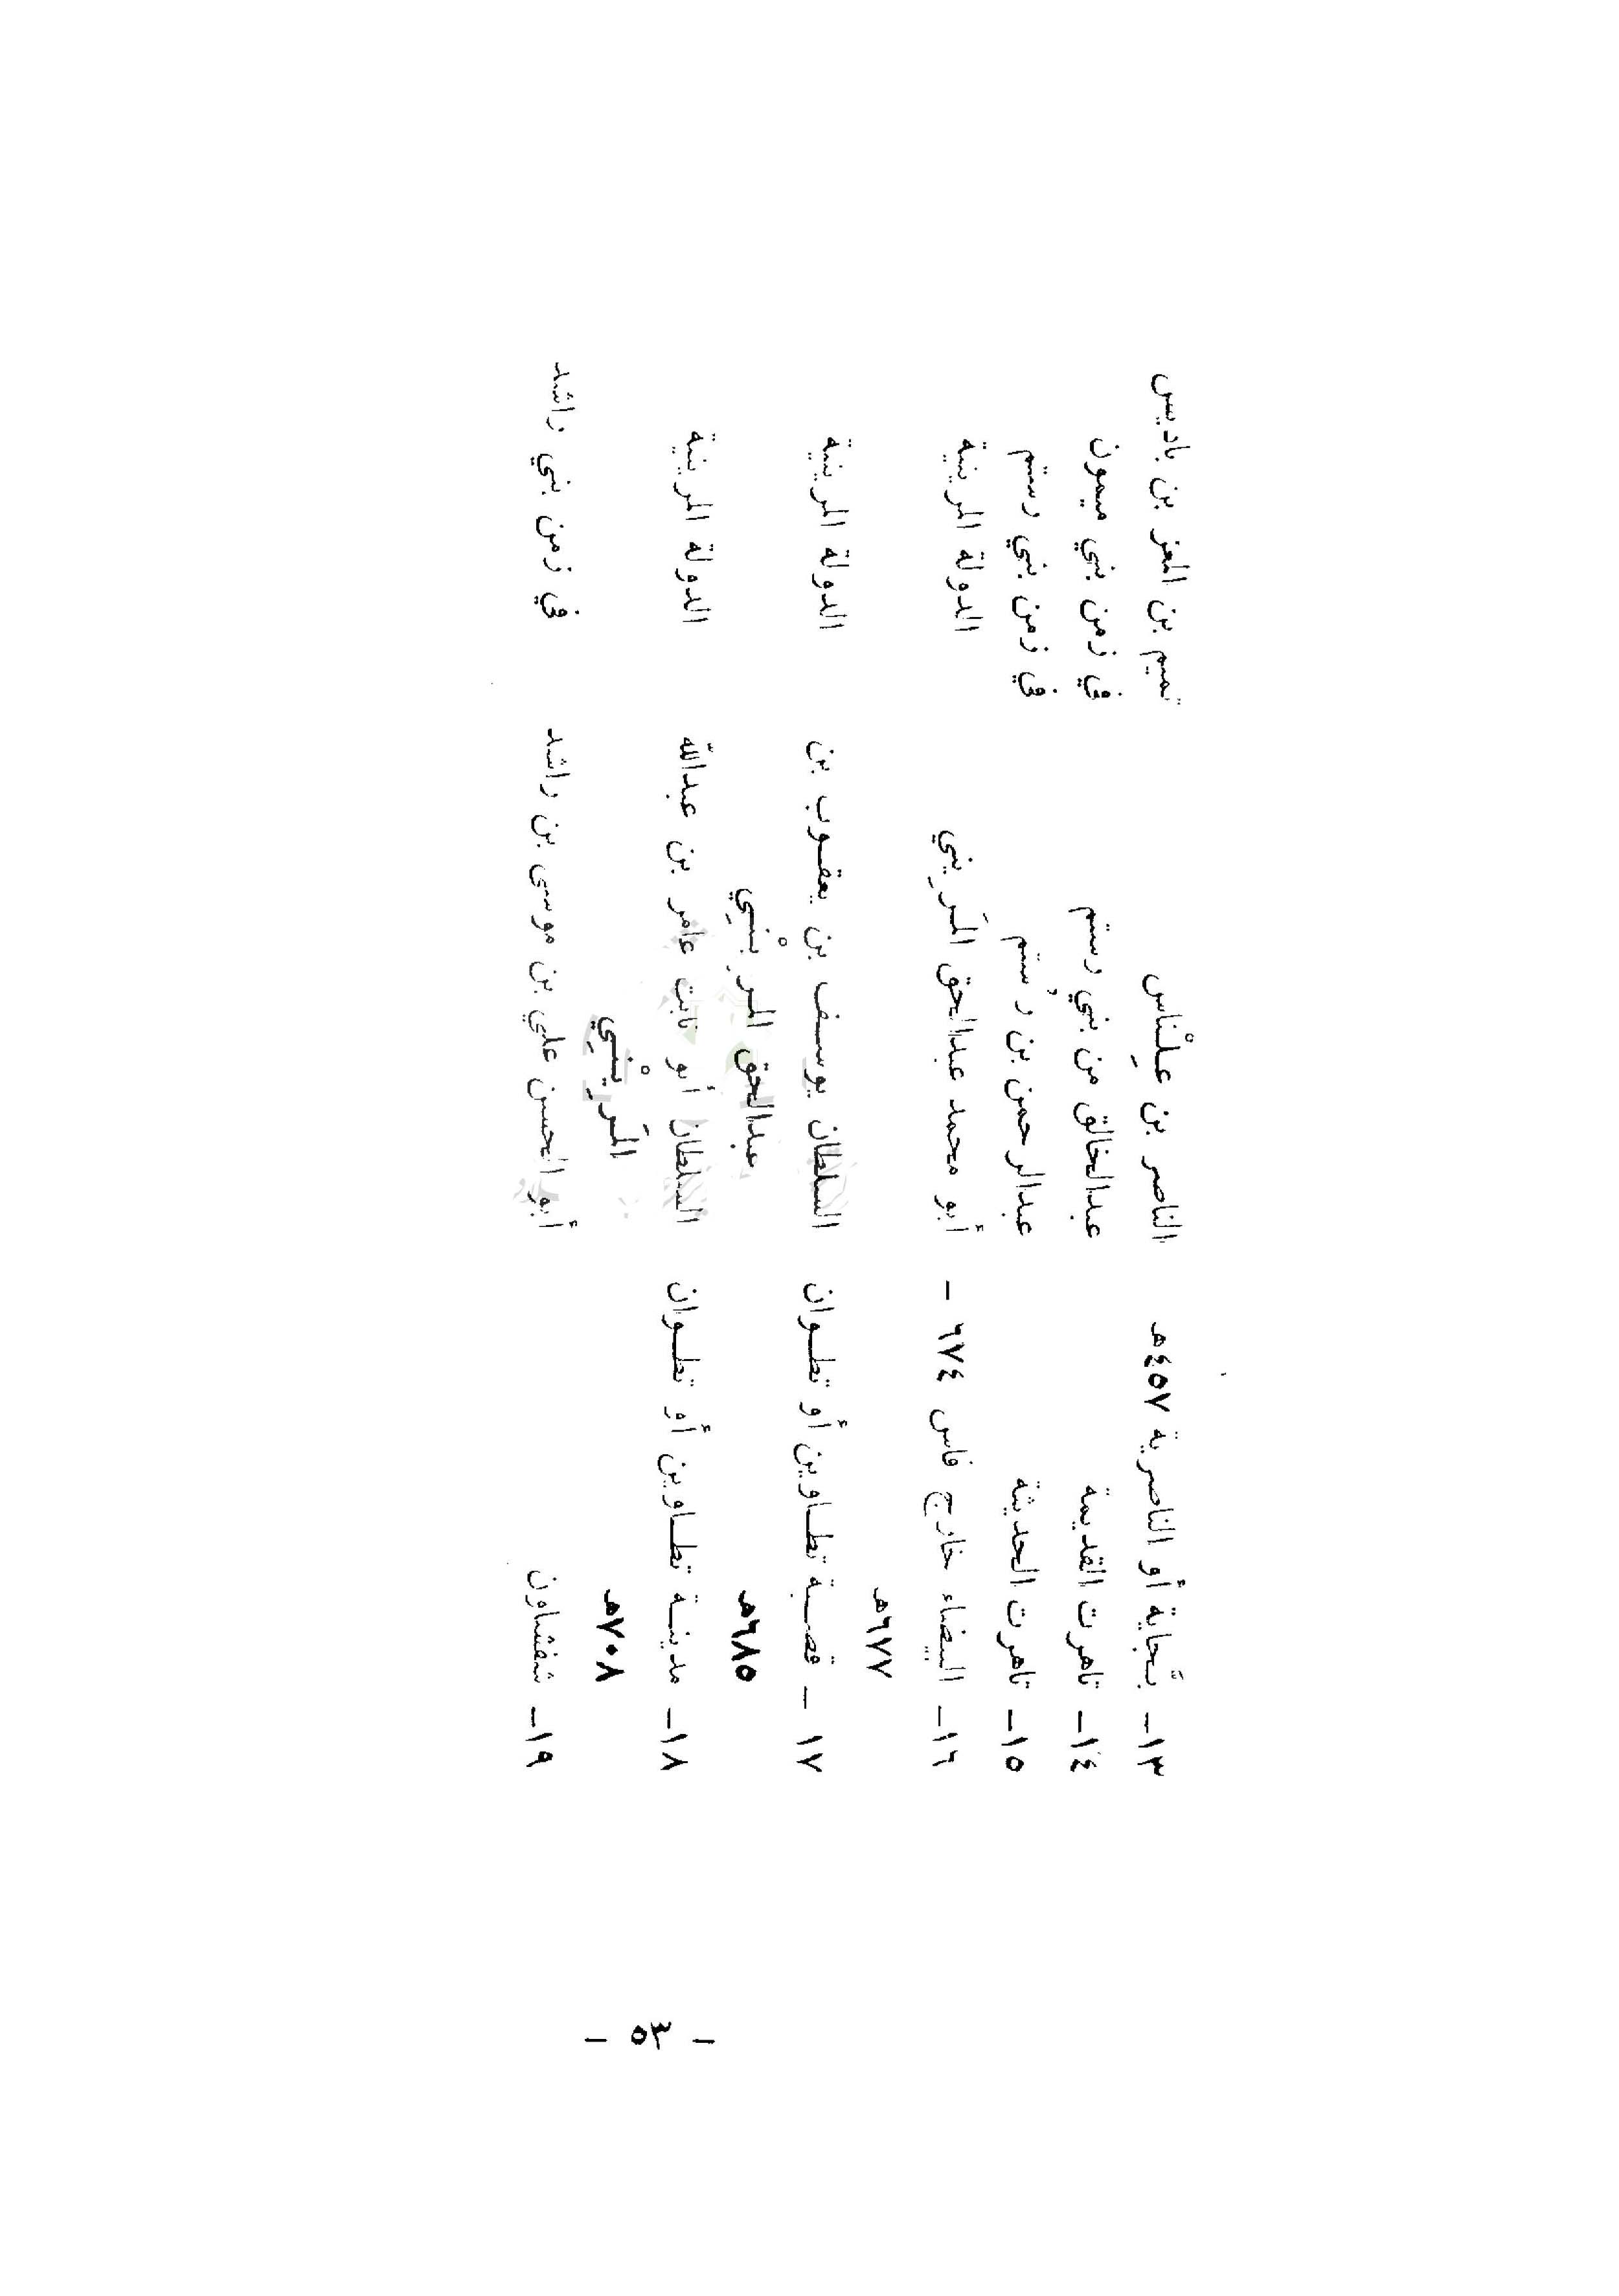 ١٣- بَجاية أو الناصرية ٤٥٧هـ الناصر بن عِلْناس تميم بن المعز بن باديس
١٤- تاهرت القديمة عبدالخالق من بني رستم في زمن بني ميمون
١٥- تاهرت الحديثة عبدالرحمن بن رُستم في زمن بني رستم
١٦- البيضاء خارج فاس ٦٧٤ - أبو محمد عبدالحق المَرِيني الدولة المرينية
٦٧٧هـ
١٧ - قصبة تطاوين أو تطوان السلطان يوسف بن يعقوب بن الدولة المرينية
٦٨٥هـ عبدالحق المريْنِي
١٨- مدينة تطاوين أو تطوان السلطان أبو ثابت عامر بن عبدالله الدولة المرينية
٧٠٨هـ المَرِيْنِي
١٩- شفشاون أبو الحسن علي بن موسى بن راشد في زمن بني راشد
- ٥٣ -